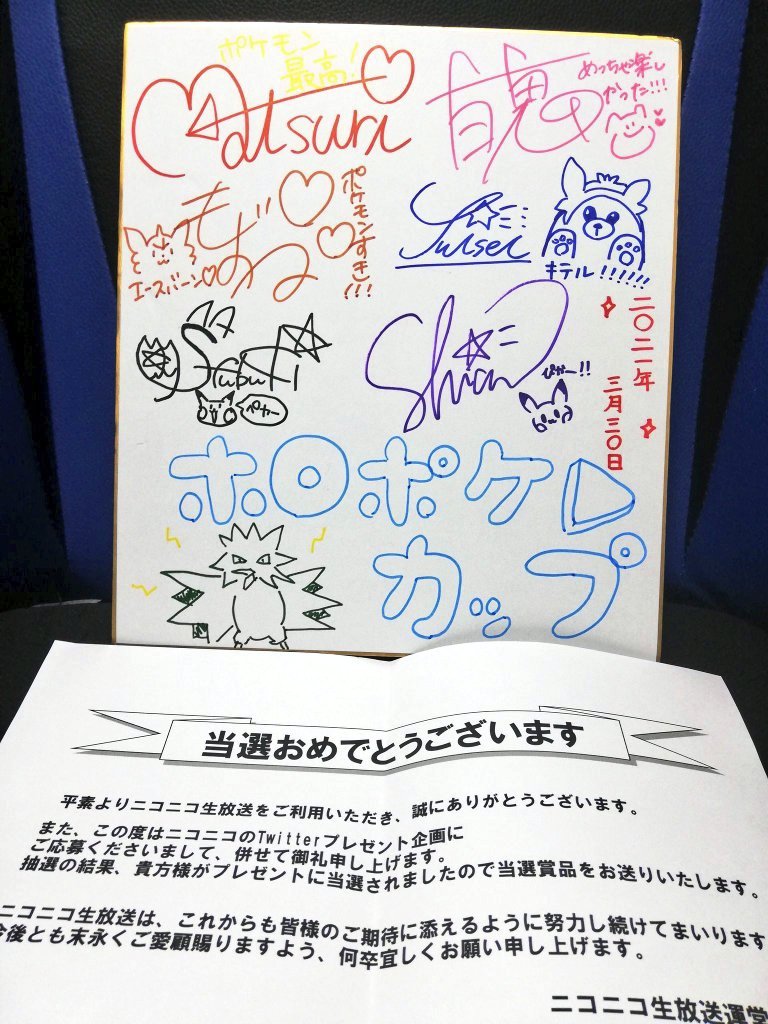 ポケモン
最高!
Matsuri
めっちゃ楽し
かった!!!
もね
ポケモンすき!!!
エースバーン♡
キテル!!!!!!
Shien
ぴかー!!
二〇二一年
三月三〇日
ホロポケ
カップ
当選おめでとうございます
平素よりニコニコ生放送をご利用いただき、誠にありがとうございます。
また、この度はニコニコのTwitterプレゼント企画に
ご応募くださいまして、併せて御礼申し上げます。
抽選の結果、貴方様がプレゼントに当選されましたので当選賞品をお送りいたします。
ニコニコ生放送は、これからも皆様のご期待に添えるように努力し続けてまいります
今後とも末永くご愛顧賜りますよう、何卒宜しくお願い申し上げます。
ニコニコ生放送運営